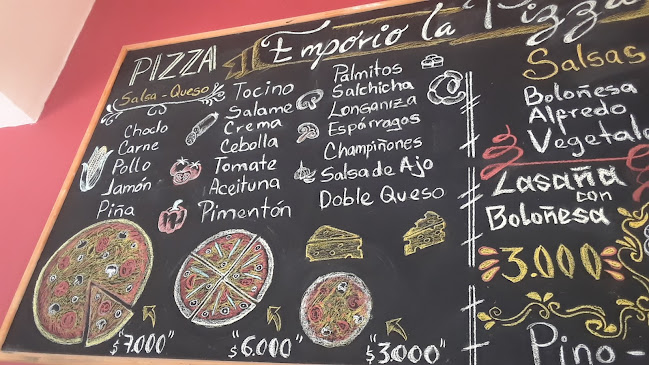 Emporio la Pizza
PIZZA
Salsa - Queso
Choclo
Carne
Pollo
Jamón
Piña
Tocino
Salame
Crema
Cebolla
Tomate
Aceituna
Pimentón
Palmitos
Salchicha
Longaniza
Espárragos
Champiñones
Salsa de Ajo
Doble Queso
$"7.000"
$"6.000"
$"3.000"
Salsas
Boloñesa
Alfredo
Vegetal
Lasaña
con
Boloñesa
3.000
Pino-